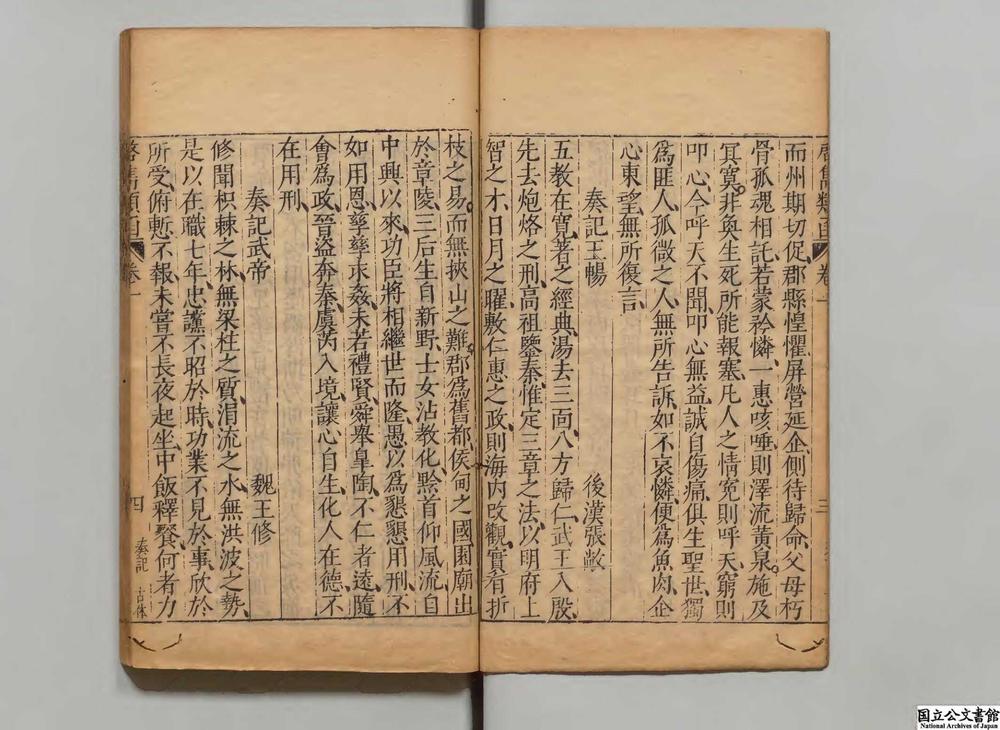 啓雋類函 卷一 三
而州期切促郡縣惶懼屏營延企側待歸命父母朽
骨孤魂相託若蒙矜憐一惠咳唾則澤流黃泉施及
冥寞非奐生死所能報塞凡人之情寃則呼天窮則
叩心今呼天不聞叩心無益誠自傷痛俱生聖世獨
爲匪人孤微之人無所告訴如不哀憐便爲魚肉企
心東望無所復言
奏記王暢 後漢張敞
五教在寬著之經典湯去三面八方歸仁武王入殷
先去炮烙之刑高祖鑒秦惟定三章之法以明府上
智之才日月之曜敷仁惠之政則海内改觀實有折
枝之易而無挾山之難郡爲舊都侯甸之國園廟出
於章陵三后生自新野士女沾教化黔首仰風流自
中興以來功臣將相繼世而隆愚以爲懇懇用刑不
如用恩孳孳求姦未若禮賢舜舉皐陶不仁者遠隨
會爲政晉盗奔秦虞芮入境讓心自生化人在德不
在用刑
奏記武帝 魏王修
修聞枳棘之林無梁柱之質涓流之水無洪波之勢
是以在職七年忠讜不昭於時功業不見於事欣於
所受俯慙不報未嘗不長夜起坐中飯釋餐何者力
啓雋類函 卷一 四 奏記 古體
国立公文書館
National Archives of Japan